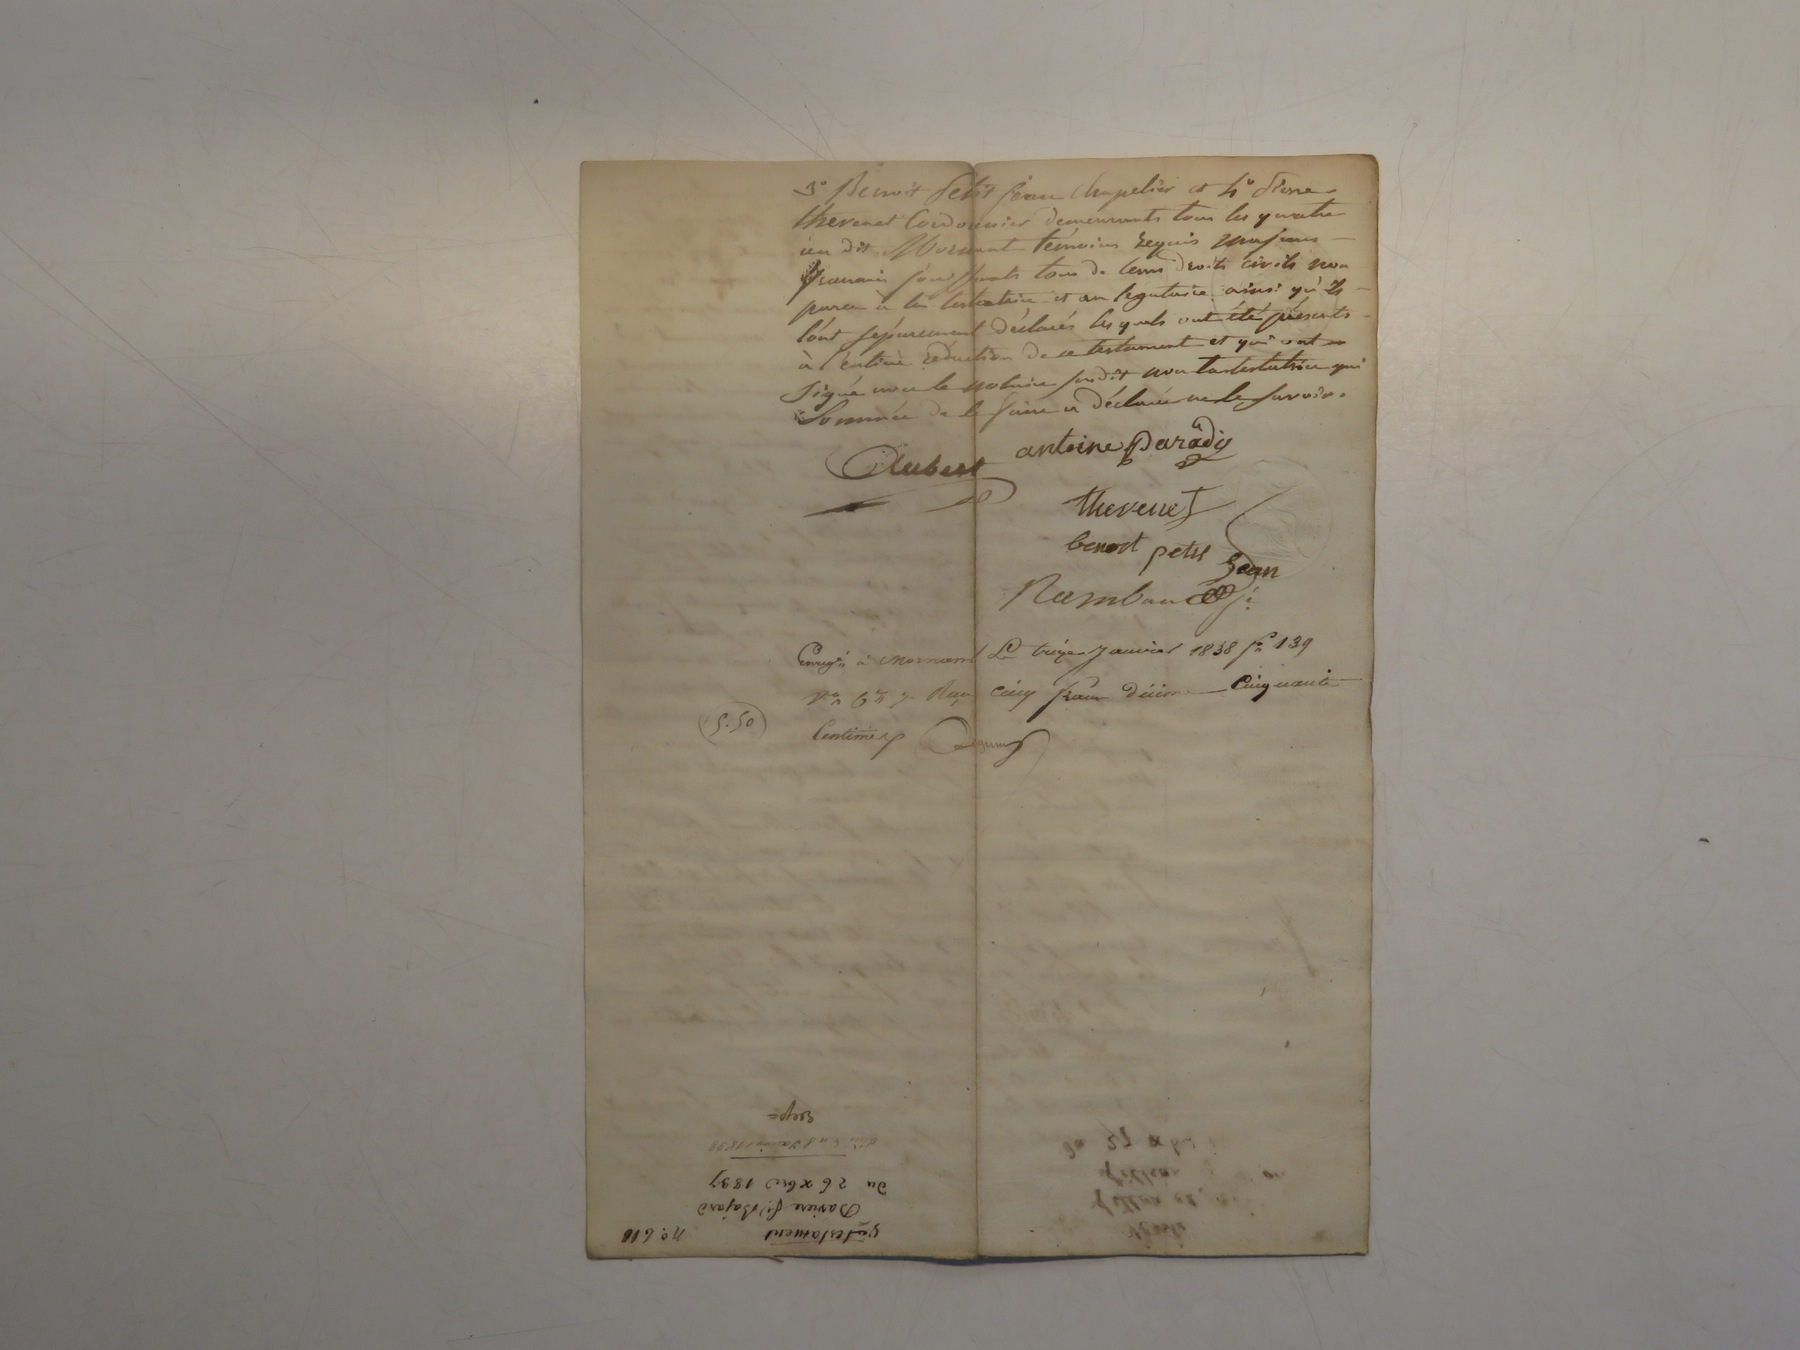 3° Benoit Petit jean Chapelier et 4° Pierre
thevenet Cordonnier demeurants tous les quatre
au dit Mornant témoins requis majeurs
francais jouissants tous de leurs droits civils non
parens à la testatrice et au légataire ainsi qu'ils
l'ont séparement déclarés lesquels ont été présents
à l'entière rédaction de ce testament et qui ont
signé avec le notaire susdit non la testatrice qui
Sommée de le faire a déclaré ne le savoir.
Aubert antoine paradis
thevenet
benoit petit
jean
Rambaud
Enregé à mornant Le treize Janvier 1838 f° 139
Reçu cinq francs décime Cinquante
(5.50) Centimes
N° 618 Testament
Baviere fe Bajard
du 26 xbre 1837
1838
Exep=